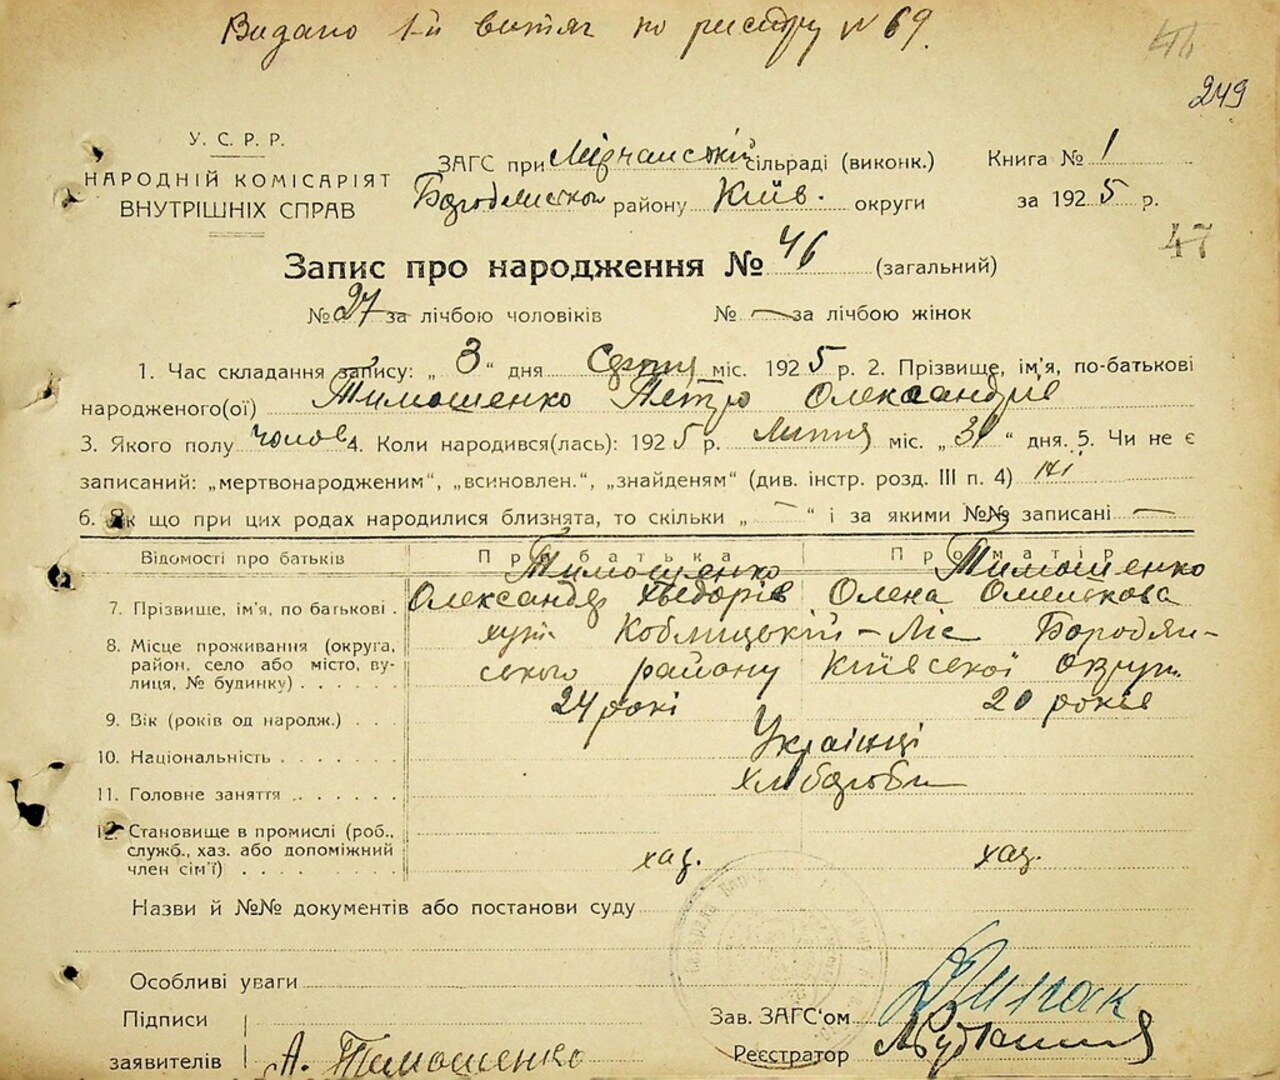 Видано 1-й витяг по реєстру № 69.
46
249
У. С. Р. Р.
НАРОДНІЙ КОМІСАРІЯТ
ВНУТРІШНІХ СПРАВ
ЗАГС при Мірчанській сільраді (виконк.)
Книга № 1
району Київ. округи
за 1925 р.
47
Запис про народження № 46 (загальний)
№ 27 за лічбою чоловіків № — за лічбою жінок
1. Час складання запису: „ 3 “ дня Серпня міс. 1925 р. 2. Прізвище, ім'я, по-батькові
народженого(ої) Тимошенко Петро Олександрів
3. Якого полу чолов 4. Коли народився(лась): 1925 р. Липня міс. „31“ дня. 5. Чи не є
записаний: „мертвонародженим“, „всиновлен.“, „знайденям“ (див. інстр. розд. III п. 4) ні
6. Як що при цих родах народилися близнята, то скільки „ — “ і за якими №№ записані —
Відомості про батьків Про батька Про матір
Тимошенко Тимошенко
7. Прізвище, ім'я, по батькові . Олександр Хведорів Олена Омелькова
8. Місце проживання (округа, район, село або місто, вулиця, № будинку) . . . . . .
хут. Коблицький-Ліс Бородян-
ського району Київської Округи
9. Вік (років од народж.) . . . 24 рокі 20 років
10. Національність . . . . . . . Українці
11. Головне заняття . . . . . . хлібороби
12. Становище в промислі (роб., служб., хаз. або допоміжний член сім'ї) . . . . . . . . хаз. хаз.
Назви й №№ документів або постанови суду
Особливі уваги
Підписи
заявителів А. Тимошенко
Зав. ЗАГС'ом
Реєстратор